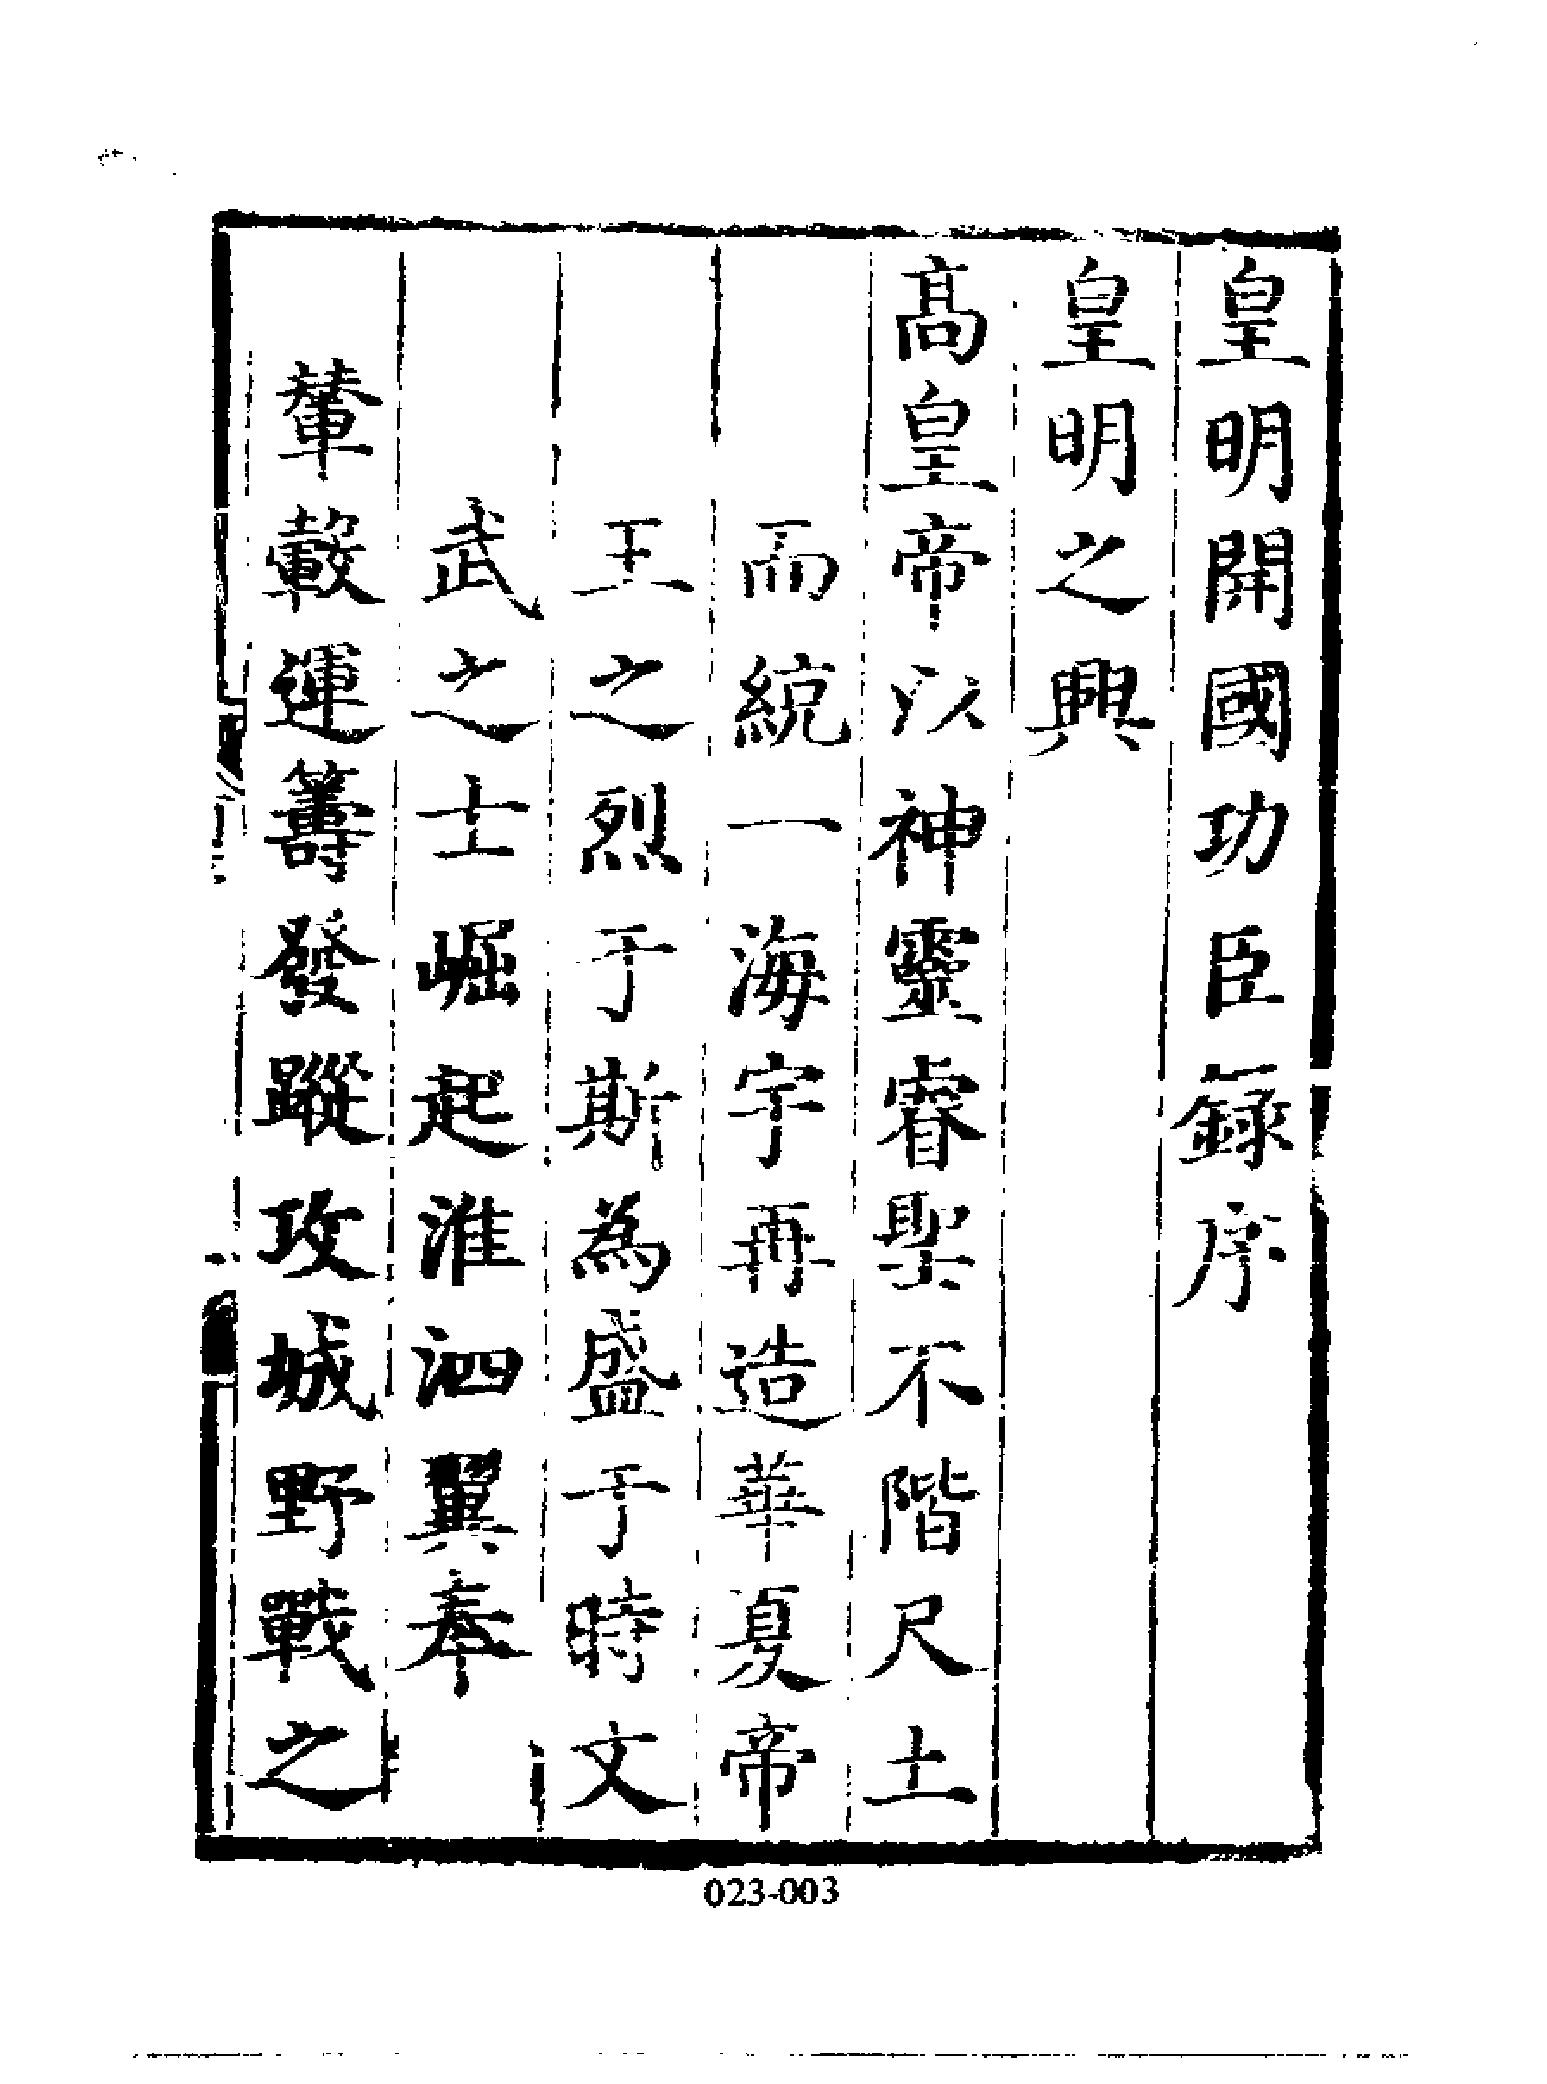 皇明開國功臣錄序
皇明之興
高皇帝以神靈睿聖不階尺土
而統一海宇再造華夏帝
王之烈于斯為盛于時文
武之士崛起淮泗翼奉
輦轂運籌發蹤攻城野戰之
023-003